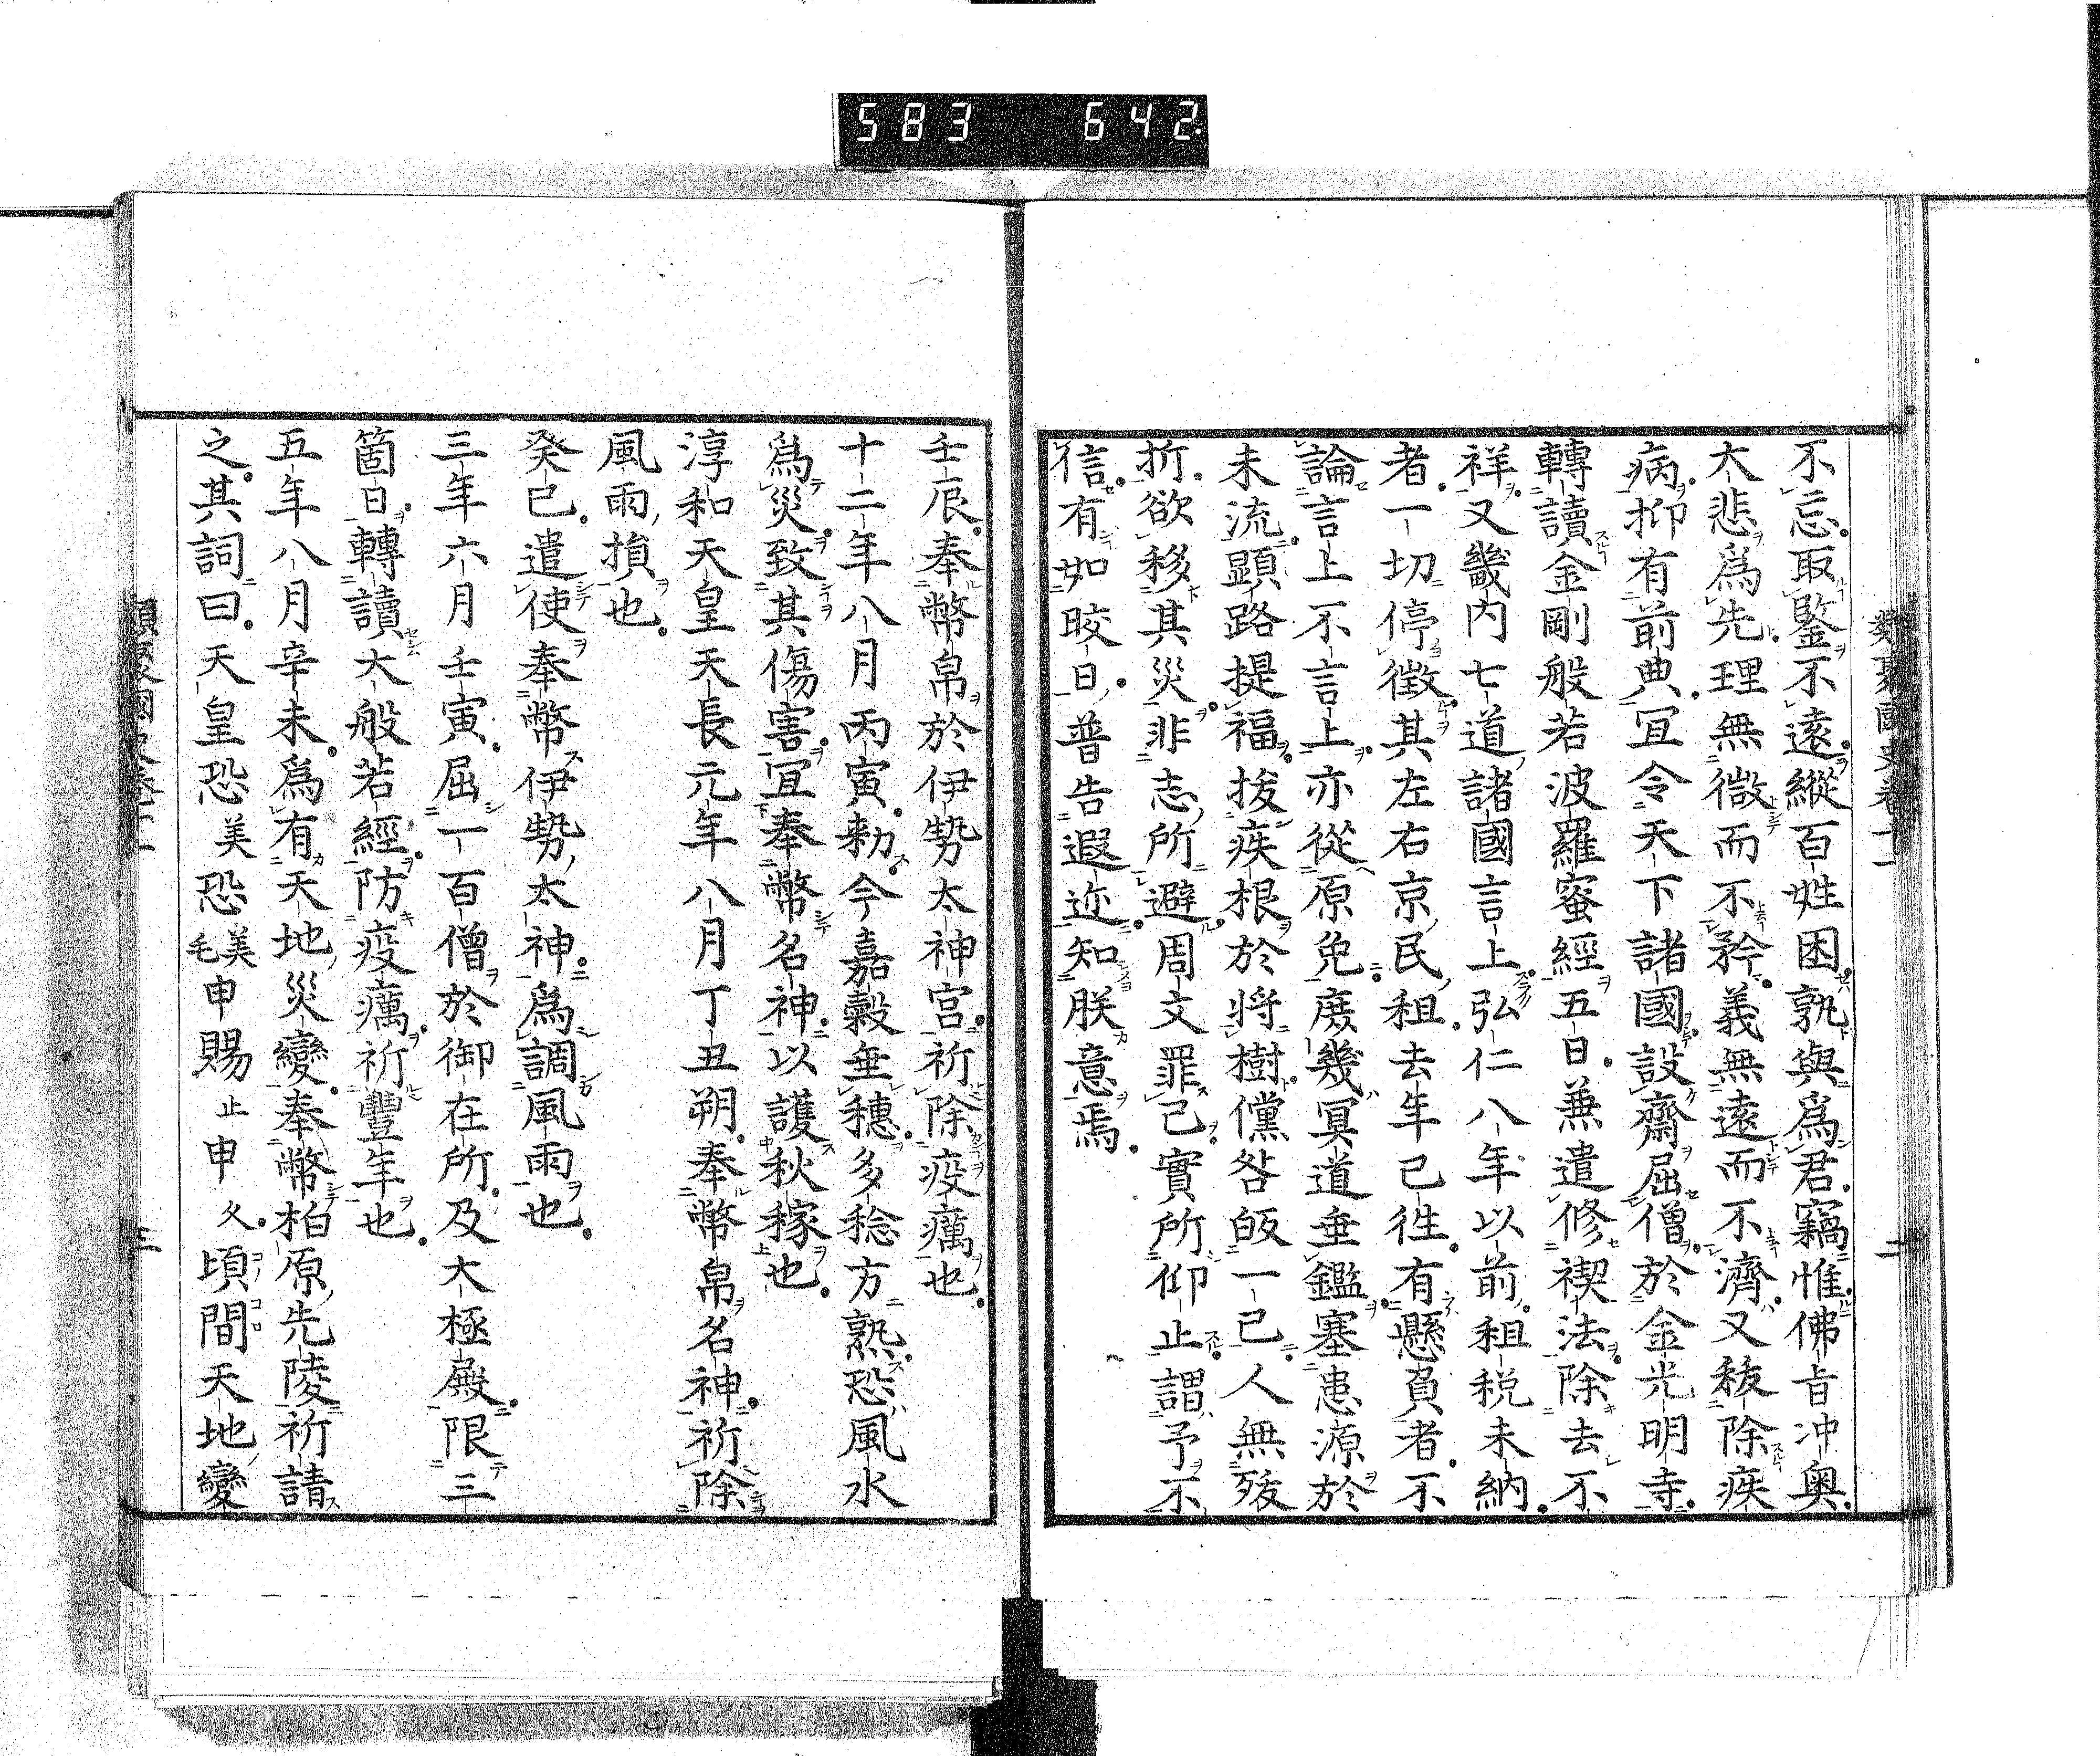 583 642
類聚國史卷十一
二
不忘取鑒不遠縱百姓困孰與爲君竊惟佛旨冲奥
大悲爲先理無微而不矜義無遠而不濟又秡除疾
病抑有前典宜令天下諸國設齋屈僧於金光明寺
轉讀金剛般若波羅蜜經五日兼遣修禊法除去不
祥又畿内七道諸國言上弘仁八年以前租税未納
者一切停徴其左右京民租去年已徃有懸負者不
論言上不言上亦從原免庶幾冥道垂鑑塞患源於
未流顕路提福拔疾根於將樹儻咎皈一己人無殀
折欲移其災非志所避周文罪己實所仰止謂予不
信有如晈日普告遐迩知朕意焉
壬辰奉幣帛於伊勢太神宮祈除疫癘也
十二年八月丙寅勑今嘉穀垂穗多稔方熟恐風水
爲災致其傷害宜奉幣名神以護秋稼也
淳和天皇天長元年八月丁丑朔奉幣帛名神祈除
風雨損也
癸巳遣使奉幣伊勢太神爲調風雨也
三年六月壬寅屈一百僧於御在所及大極殿限三
箇日轉讀大般若經防疫癘祈豐年也
五年八月辛未爲有天地災變奉幣柏原先陵祈請
之其詞曰天皇恐美恐美毛申賜止申久頃間天地變
類聚國史卷十一
三